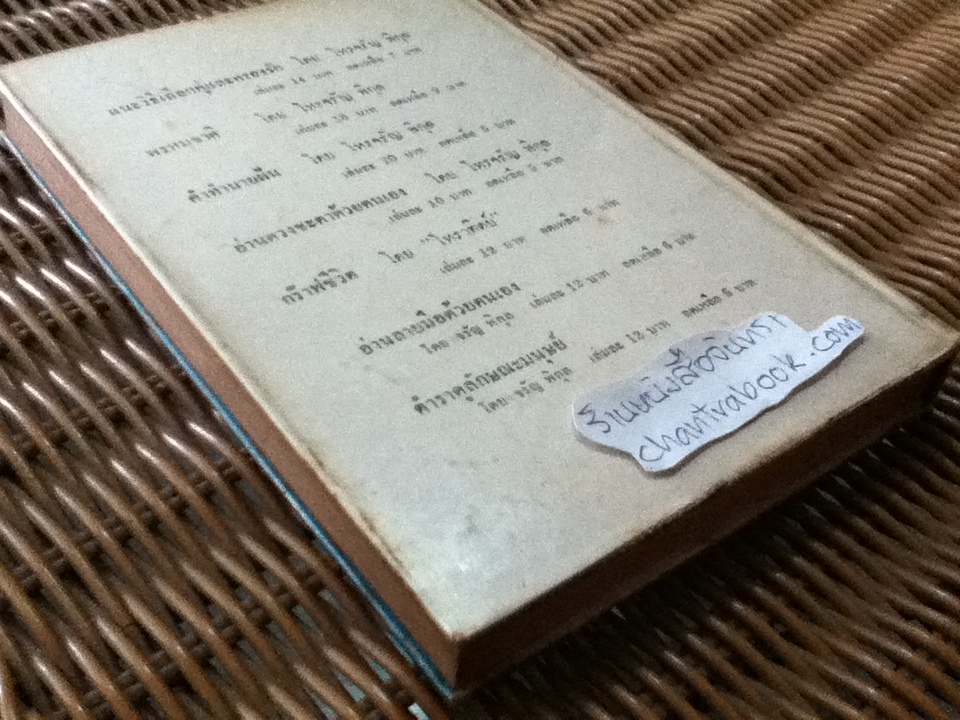 แนะวิธีเลือกคู่และครองรัก โดย ไทรจรัญ พิกุล
เล่มละ 14 บาท ลดเหลือ 7 บาท
โดย ไทรจรัญ พิกุล
เล่มละ 18 บาท ลดเหลือ 9 บาท
ตำทำนายฝัน โดย ไทรจรัญ พิกุล
เล่มละ 10 บาท ลดเหลือ 5 บาท
อ่านดวงชะตาด้วยตนเอง โดย ไทรจรัญ พิกุล
เล่มละ 10 บาท ลดเหลือ 5 บาท
กร๊าฟชีวิต โดย "ไทราทิตย์"
เล่มละ 12 บาท ลดเหลือ 6 บาท
อ่านลายมือด้วยตนเอง
โดย จรัญ พิกุล เล่มละ 12 บาท ลดเหลือ 6 บาท
ตำราดูลักษณะมนุษย์
โดย จรัญ พิกุล เล่มละ 12 บาท ลดเหลือ 6 บาท
ร้านหนังสือจันทรา
chantrabook.com